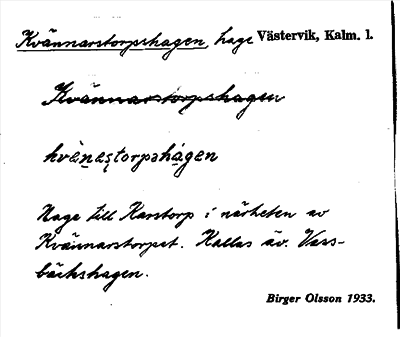 Kvännarstorpshagen, hage Västervik, Kalm. l.
Kvännarstorpshagen
hvänestorpshagen
Hage till Karstorp i närheten av
Kvännarstorpet. Kallas äv. Vass-
bäckshagen.
Birger Olsson 1933.